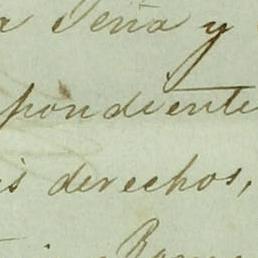 a Peña y
pondiente
is derechos,